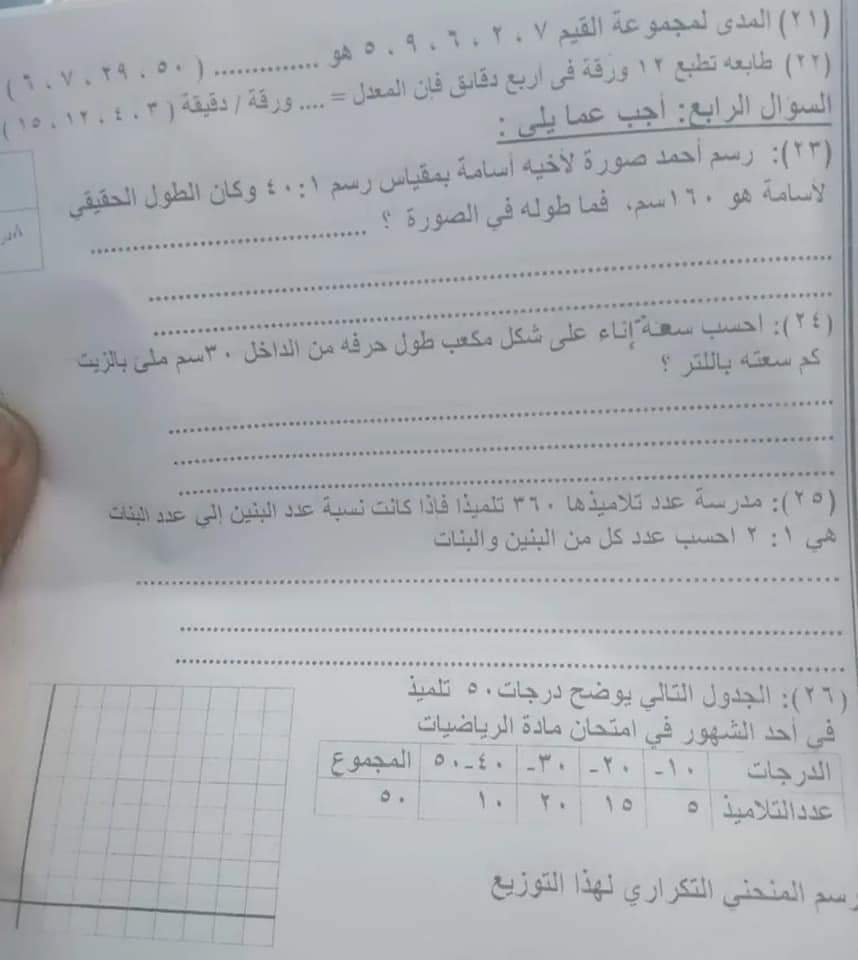 (٢١) المدى لمجموعة القيم ٧ ، ٢ ، ٦ ، ٩ ، ٥ هو .............. ( ٥٠ ، ٢٩ ، ٧ ، ٦ )
(٢٢) طابعه تطبع ١٢ ورقة فى أربع دقائق فإن المعدل = .... ورقة / دقيقة ( ٣ ، ٤ ، ١٢ ، ١٥ )
السؤال الرابع: أجب عما يلى :
(٢٣): رسم أحمد صورة لأخيه أسامة بمقياس رسم ١ : ٤٠ وكان الطول الحقيقي
لأسامة هو ١٦٠سم، فما طوله في الصورة ؟ ..............................
(٢٤): احسب سعة إناء على شكل مكعب طول حرفه من الداخل ٣٠سم ملئ بالزيت
كم سعته باللتر ؟
(٢٥): مدرسة عدد تلاميذها ٣٦٠ تلميذا فإذا كانت نسبة عدد البنين إلي عدد البنات
هي ١ : ٢ احسب عدد كل من البنين والبنات
(٢٦): الجدول التالي يوضح درجات٥٠ تلميذ
في أحد الشهور في امتحان مادة الرياضيات
الدرجات ١٠- ٢٠- ٣٠- ٤٠-٥٠ المجموع
عددالتلاميذ ٥ ١٥ ٢٠ ١٠ ٥٠
رسم المنحني التكراري لهذا التوزيع